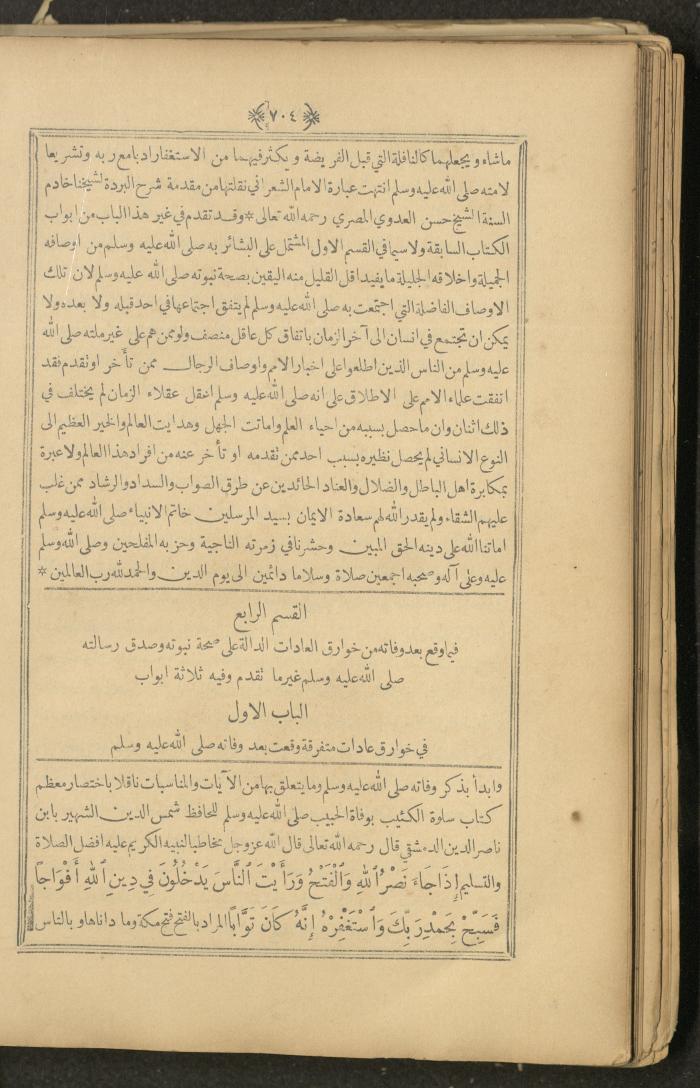 ٧٠٤
ماشاء ويجعلهما كالنافلة التي قبل الفريضة ويكثر فيهما من الاستغفار ادبا مع ربه وتشريعا
لامته صلى الله عليه وسلم انتهت عبارة الامام الشعراني نقلتها من مقدمة شرح البردة لشيخنا خادم
السنة الشيخ حسن العدوي المصري رحمه الله تعالى * وقد تقدم في غير هذا الباب من ابواب
الكتاب السابقة ولاسيما في القسم الاول المشتمل على البشائر به صلى الله عليه وسلم من اوصافه
الجميلة واخلاقه الجليلة ما يفيد اقل القليل منه اليقين بصحة نبوته صلى الله عليه وسلم لان تلك
الاوصاف الفاضلة التي اجتمعت به صلى الله عليه وسلم لم يتفق اجتماعها في احد قبله ولا بعده ولا
يمكن ان تجتمع في انسان الى آخر الزمان باتفاق كل عاقل منصف ولو ممن هم على غير ملته صلى الله
عليه وسلم من الناس الذين اطلعوا على اخبار الامم واوصاف الرجال ممن تأخر او تقدم فقد
اتفقت علماء الامم على الاطلاق على انه صلى الله عليه وسلم اعقل عقلاء الزمان لم يختلف في
ذلك اثنان وان ما حصل بسببه من احياء العلم واماتت الجهل وهدايت العالم والخير العظيم الى
النوع الانساني لم يحصل نظيره بسبب احد ممن تقدمه او تأخر عنه من افراد هذا العالم ولا عبرة
بمكابرة اهل الباطل والضلال والعناد الحائدين عن طرق الصواب والسداد والرشاد ممن غلب
عليهم الشقاء ولم يقدر الله لهم سعادة الايمان بسيد المرسلين خاتم الانبياء صلى الله عليه وسلم
اماتنا الله على دينه الحق المبين وحشرنا في زمرته الناجية وحزبه المفلحين وصلى الله وسلم
عليه وعلى آله وصحبه اجمعين صلاة وسلاما دائمين الى يوم الدين والحمد لله رب العالمين *
القسم الرابع
فيما وقع بعد وفاته من خوارق العادات الدالة على صحة نبوته وصدق رسالته
صلى الله عليه وسلم غير ما تقدم وفيه ثلاثة ابواب
الباب الاول
في خوارق عادات متفرقة وقعت بعد وفاته صلى الله عليه وسلم
وابدأ بذكر وفاته صلى الله عليه وسلم وما يتعلق بها من الآيات والمناسبات ناقلا باختصار معظم
كتاب سلوة الكئيب بوفاة الحبيب صلى الله عليه وسلم للحافظ شمس الدين الشهير بابن
ناصر الدين الدمشقي قال رحمه الله تعالى قال الله عز وجل مخاطبا لنبيه الكريم عليه افضل الصلاة
والتسليم إِذَا جَاءَ نَصْرُ ٱللهِ وَٱلْفَتْحُ وَرَأَيْتَ ٱلنَّاسَ يَدْخُلُونَ فِي دِينِ ٱللهِ أَفْوَاجًا
فَسَبِّحْ بِحَمْدِ رَبِّكَ وَٱسْتَغْفِرْهُ إِنَّهُ كَانَ تَوَّابًا المراد بالفتح فتح مكة وما داناها و بالناس